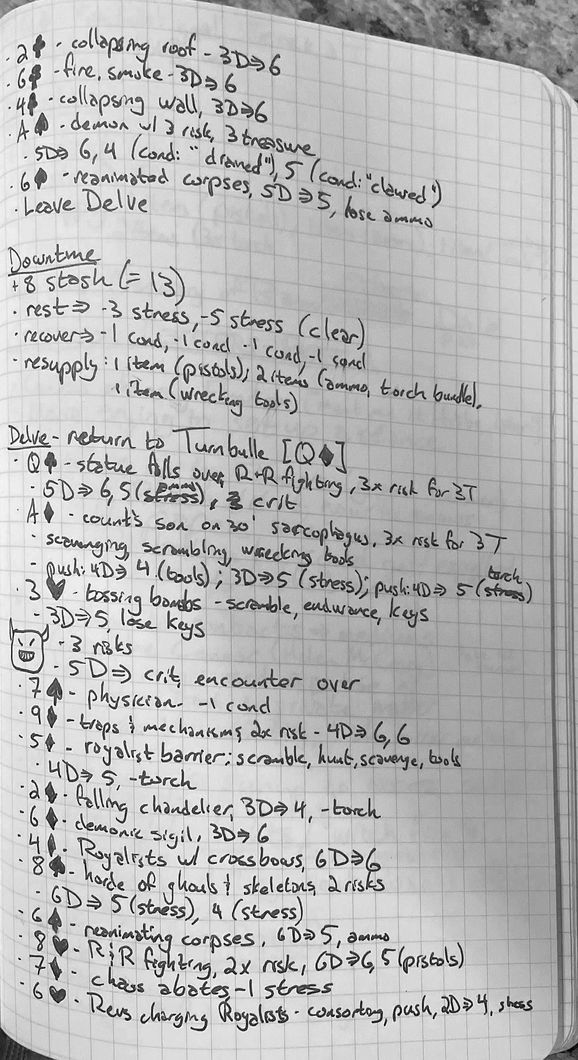 · 2♣ - collapsing roof - 3D⇒6
· 6♣ - fire, smoke - 3D⇒6
· 4♠ - collapsing wall, 3D⇒6
· A♠ - demon w/ 3 risk, 3 treasure
· 5D⇒ 6, 4 (cond: "drained"), 5 (cond: "clawed")
· 6♠ - reanimated corpses, 5D⇒5, lose ammo
· Leave Delve
Downtime
+8 stash (= 13)
· rest ⇒ -3 stress, -5 stress (clear)
· recover ⇒ -1 cond, -1 cond -1 cond, -1 cond
· resupply: 1 item (pistols); 2 items (ammo, torch bundle),
1 item (wrecking tools)
Delve - return to Turnbulle [Q♦]
· Q♠ - statue falls over, R+R fighting, 3x risk for 3T
- 5D⇒ 6, 5 (ammo), crit
· A♦ - count's son on 30' sarcophagus, 3x risk for 3T
- scavenging, scrambling, wrecking tools
- push: 4D⇒ 4 (tools); 3D⇒5 (stress); push: 4D⇒ 5 (torch)
· 3♥ - tossing bombs - scramble, endurance, keys
- 3D⇒5, lose keys
- 3 risks
- 5D⇒ crit, encounter over
· 7♠ - physician - -1 cond
· 9♦ - traps & mechanisms, 2x risk - 4D⇒6, 6
· 5♦ - royalist barrier; scramble, hunt, scavenge, tools
· 4D⇒ 5, -torch
· 2♦ - falling chandelier, 3D⇒4, -torch
· 6♦ - demonic sigil, 3D⇒6
· 4♦ - Royalists w/ crossbows, 6D⇒6
· 8♠ - horde of ghouls & skeletons, 2 risks
- 6D⇒ 5 (stress), 4 (stress)
· 6♠ - reanimating corpses, 6D⇒5, ammo
· 8♥ - R&R fighting, 2x risk, 6D⇒6, 5 (pistols)
· 7♦ - chaos abates -1 stress
· 6♥ - Revs charging Royalists - consorting, push, 2D⇒4, stress